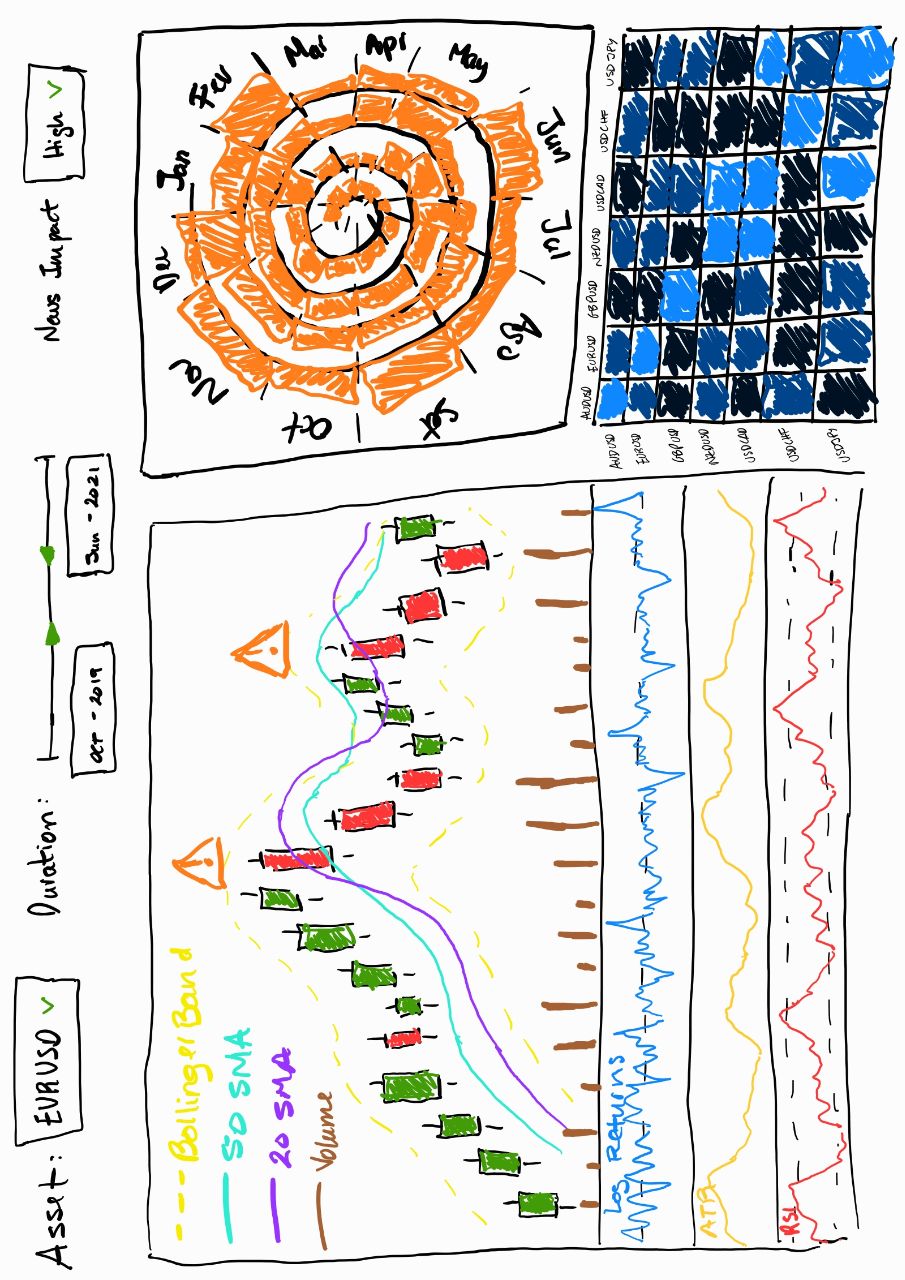 Asset: EURUSD
Duration:
Oct - 2019
Jun - 2021
News Impact High
Bollinger Band
50 SMA
20 SMA
Volume
Log Returns
ATR
RSI
Dec
Jan
Fev
Mar
Apr
May
Jun
Jul
Aug
Oct
Nov
AUDUSD EURUSD GBPUSD NZDUSD USDCAD USDCHF USDJPY
AUDUSD
EURUSD
GBPUSD
NZDUSD
USDCAD
USDCHF
USDJPY